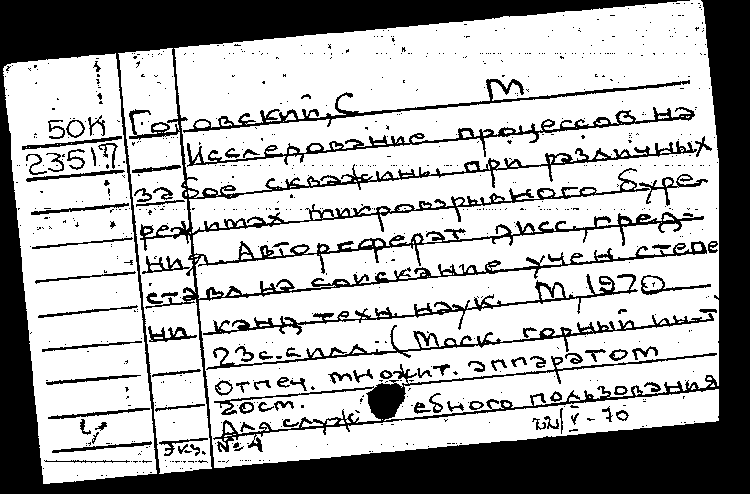 50К Готовский, С М
23517 Исследование процессов на
забое скважины при различных
режимах микровзрывного буре-
ния. Автореферат дисс., пред-
ставл. на соискание учен. степе
ни канд. техн. наук. М., 1970
23с. с илл. (Моск. горный ин-т
отпеч. множит. аппаратом
20см.
Для служебного пользования
экз. №4 V-70